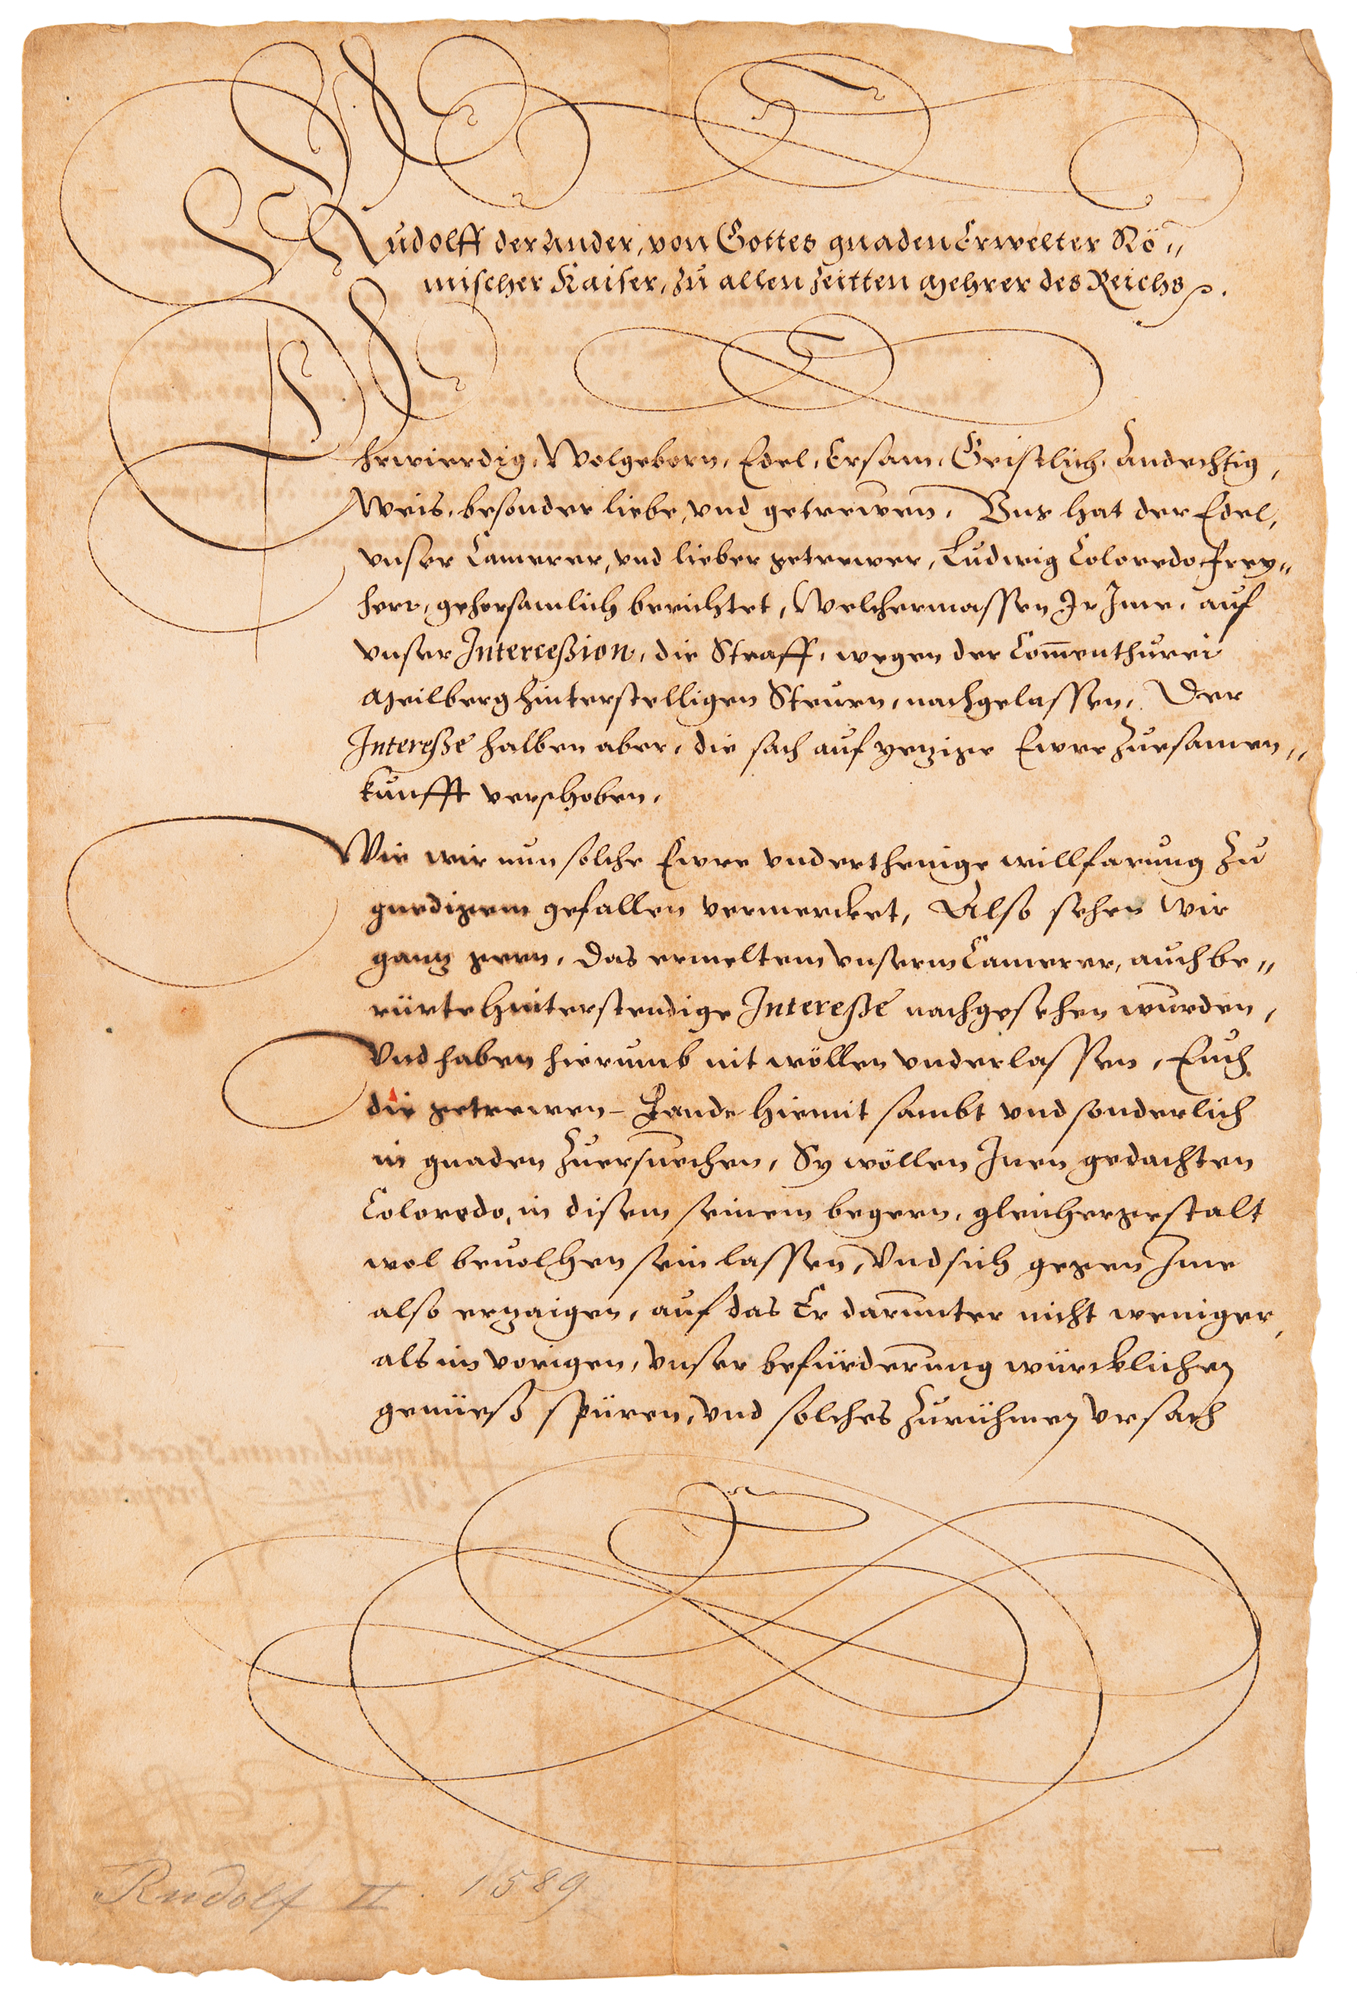 Rudolff der Ander, von Gottes gnaden Erwelter Rö„
mischer Kaiser, zu allen Zeitten Mehrer des Reichs
Ehrwierdig, Wolgeborn, Edel, Ersam, Geistlich, Andechtig,
Weis, besonder liebe, vnd getrewen, Vnns hat der Edel,
vnser Camerer, vnd lieber getrewer, Ludwig Coloredo Frey„
herr, gehorsamlich berichtet, Welchermassen Ir Ime, auf
vnser Interceßion, die Straff, wegen der Com̄enthurei
Meilberg hinterstelligen Steurn, nachgelassen, Der
Intereße halben aber, die sach auf yezige Ewre Zuesamen„
kunfft verschoben.
Wie wir nun solche Ewre vnderthenige willfarung zu
gnedigem gefallen vermercket, Also sehen wir
gantz gern, das ermeltem vnserm Camerer, auch be„
rürte hinterstendige Intereße nachgesehen wurden,
Vnd haben hierumb nit wöllen vnderlassen, Euch
die getrewen Lande hiemit sambt vnd sonderlich
in gnaden zuersuechen, Sy wöllen Inen gedachten
Coloredo, in disem seinem begern, gleichergestalt
wol beuolhen sein lassen, Vnd sich gegen Ime
also erzaigen, auf das Er darunter nicht weniger,
als im vorigen, vnser befürderung würcklichen
genüeß spüren, vnd solches zurühmen vrsach
Rudolf II. 1589